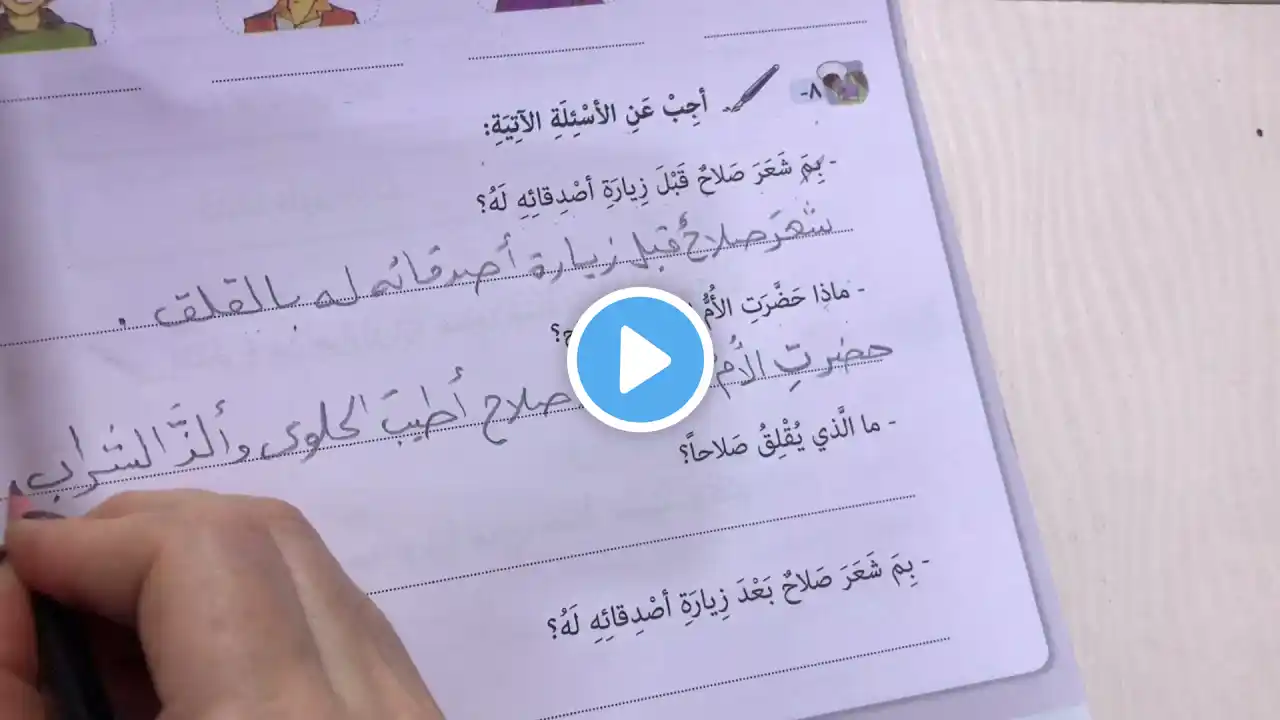 ٨-
أجِبْ عَنِ الأسْئِلَةِ الآتِيَةِ:
- بِمَ شَعَرَ صَلاحٌ قَبْلَ زِيارَةِ أصْدِقائِهِ لَهُ؟
شعرَ صلاحٌ قبل زيارة أصدقائه له بالقلق .
- ماذا حَضَّرَتِ الأُمُّ
حضرتِ الأم صلاح أطيبَ الحلوى وألذَّ الشراب
- ما الَّذي يُقْلِقُ صَلاحاً؟
- بِمَ شَعَرَ صَلاحٌ بَعْدَ زِيارَةِ أصْدِقائِهِ لَهُ؟